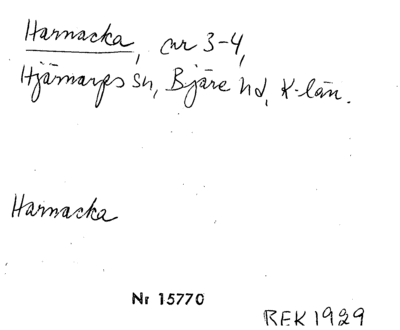 Harnacka, nr 3-4,
Hjärnarps sn, Bjäre hd, K-län.
Harnacka
Nr 15770
REK 1929